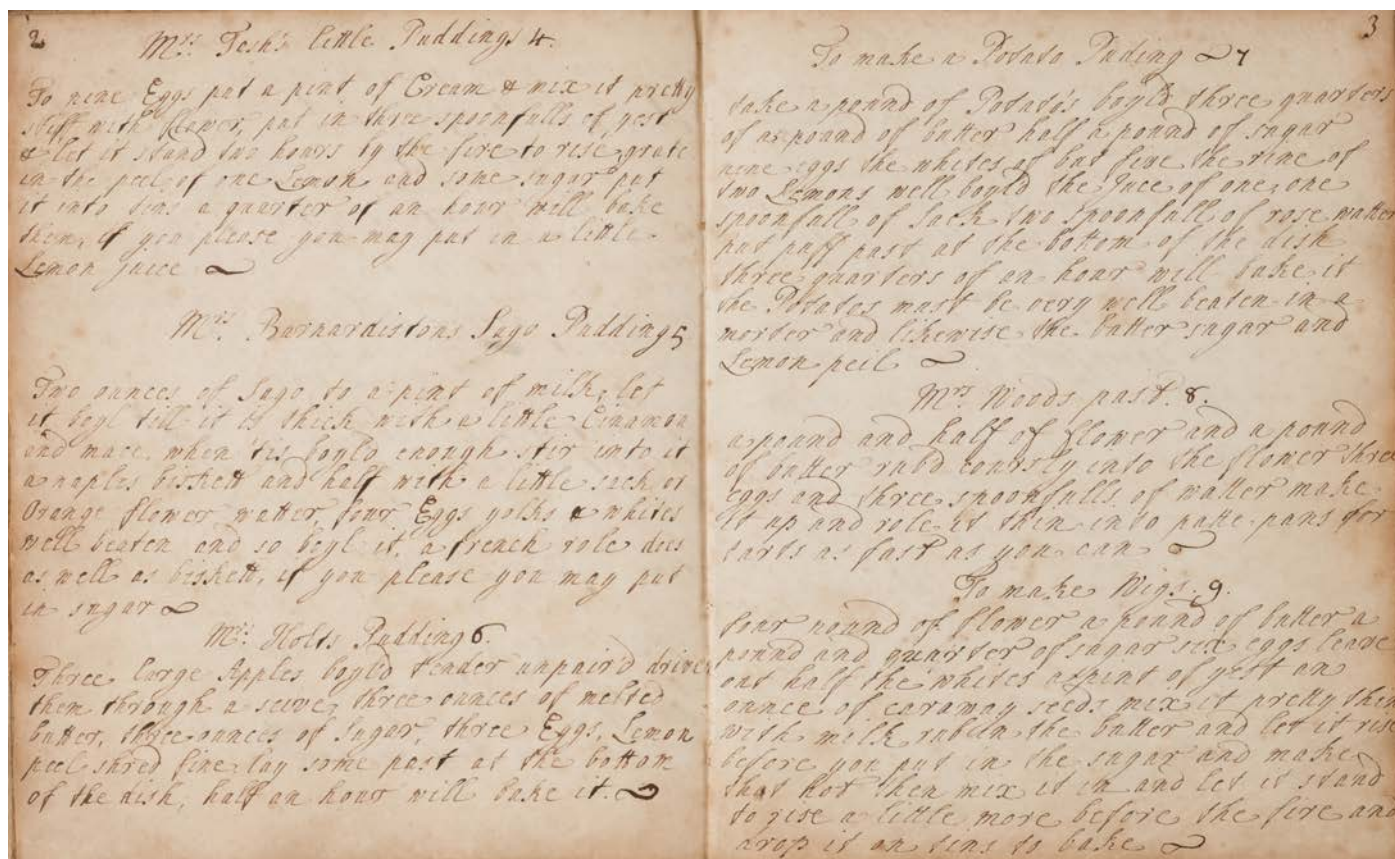 2
Mrs. Tesh's little Puddings 4.
To nine Eggs put a pint of Cream & mix it pretty
stiff with flower, put in three spoonfulls of yest
& let it stand two hours by the fire to rise, grate
in the peel of one Lemon and some sugar put
it into tins a quarter of an hour will bake
them, if you please you may put in a little
Lemon juice
Mrs. Barnardistons Sago Pudding 5
Two ounces of Sago to a pint of milk, let
it boyl till it is thick with a little Cinamon
and mace, when 'tis boyld enough stir into it
a naples biskett and half with a little sack or
Orange flower watter, four Eggs yolks & whites
well beaten and so boyl it, a french role does
as well as biskett, if you please you may put
in sugar
Mrs. Holts Pudding 6.
Three large Apples boyl'd tender unpair'd drive
them through a seive, three ounces of melted
butter, three ounces of Sugar, three Eggs, Lemon
peel shred fine, lay some past at the bottom
of the dish, half an hour will bake it.
3
To make a Potato Puding 7
take a pound of Potato's boyl'd three quarters
of a pound of butter half a pound of sugar
nine eggs the whites of but five the rine of
two Lemons well boyld the Juce of one, one
spoonfull of Sack two spoonfull of rose watter
put puff past at the bottom of the dish
three quarters of an hour will bake it
the Potatos must be very well beaten in a
morter and likewise the butter sugar and
Lemon peil
Mrs. Woods past. 8.
a pound and half of flower and a pound
of butter rub'd coursly into the flower three
eggs and three spoonfulls of watter make
it up and role it then into patte pans for
tarts as fast as you can
To make Wigs. 9.
four pound of flower a pound of butter a
pound and quarter of sugar six eggs leave
out half the whites a pint of yest an
ounce of caraway seeds mix it pretty thin
with milk rub in the butter and let it rise
before you put in the sugar and make
that hot then mix it in and let it stand
to rise a little more before the fire and
drop it on tins to bake